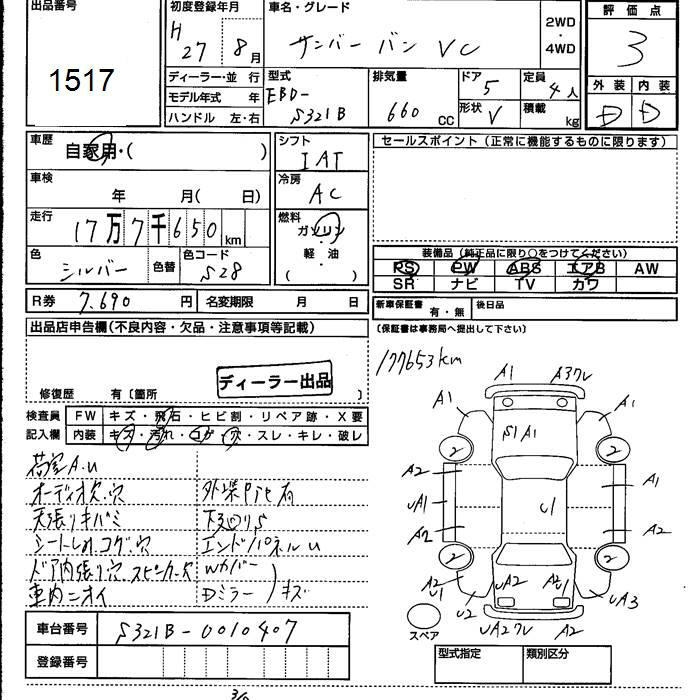 出品番号
1517
初度登録年月
H 27 8月
車名・グレード
サンバー バン VC
2WD
・
4WD
評価点
3
外装 内装
D D
ディーラー・並 行
モデル年式 年
ハンドル 左・右
型式
EBD-
S321B
排気量
660 CC
ドア
5
形状 V
定員
4人
積載
kg
車歴
自家用・( )
車検
年 月( 日)
走行
17万7千650km
色
シルバー
色替
色コード
S28
シフト
IAT
冷房
AC
燃料
ガソリン
軽・油
( )
セールスポイント(正常に機能するものに限ります)
装備品(純正品に限り○をつけてください)
PS PW ABS エアB AW
SR ナビ TV カワ
R券 7,690円
名変期限 月 日
新車保証書 有・無
後日品
(保証書は事務局へ提出して下さい)
出品店申告欄(不良内容・欠品・注意事項等記載)
ディーラー出品
修復歴 有〔箇所 〕
検査員
記入欄
FW キズ・飛石・ヒビ割・リペア跡・X要
内装 キズ・汚れ・コゲ・穴・スレ・キレ・破レ
荷室A.U
オーディオ欠.穴
外装P/セ有
天張りキバミ
下廻りS
シートしみ コゲ.穴
エンドパネルU
ドア内張り穴 スピーカー欠
Wカバー
車内ニオイ
Dミラー
キズ
177653km
A1 A3ワレ
A1 A1
S1 A1
2 2
A2 A1
UA1 U1
A2 A2
2 2
A2
U1 UA2 A2
U1 UA3
U2
UA2ワレ A2
スペア
車台番号 S321B-0010407
登録番号
型式指定 類別区分